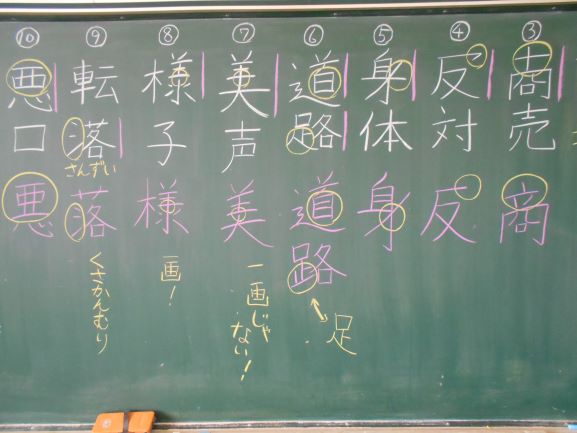 ③
商売
商
④
反対
反
⑤
身体
身
⑥
道路
道路
足
⑦
美声
美
一画じゃない!
⑧
様子
様
一画!
⑨
転落
さんずい
落
くさかんむり
⑩
悪口
悪